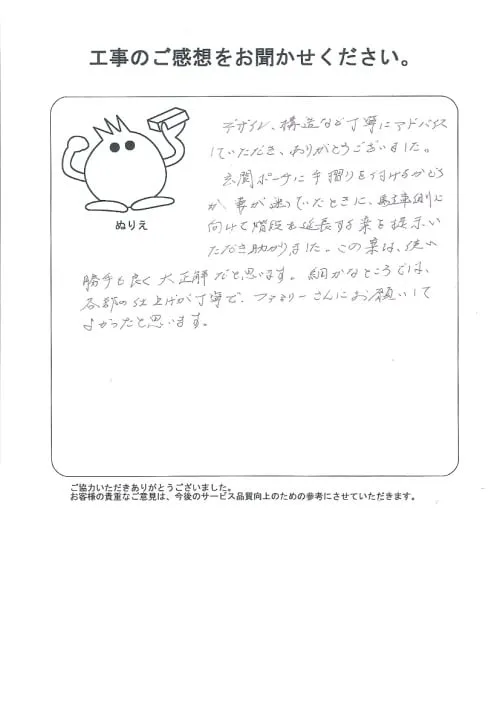 工事のご感想をお聞かせください。
ぬりえ
デザイン、構造など丁寧にアドバイス
していただき、ありがとうございました。
玄関ポーチに手摺りを付けるかどう
か、妻が迷っていたときに、駐車側に
向けて階段を延長する案を提示い
ただき助かりました。この案は、使い
勝手も良く大正解だと思います。細かなところでは、
各部の仕上げが丁寧で、ファミリーさんにお願いして
よかったと思います。
ご協力いただきありがとうございました。
お客様の貴重なご意見は、今後のサービス品質向上のための参考にさせていただきます。